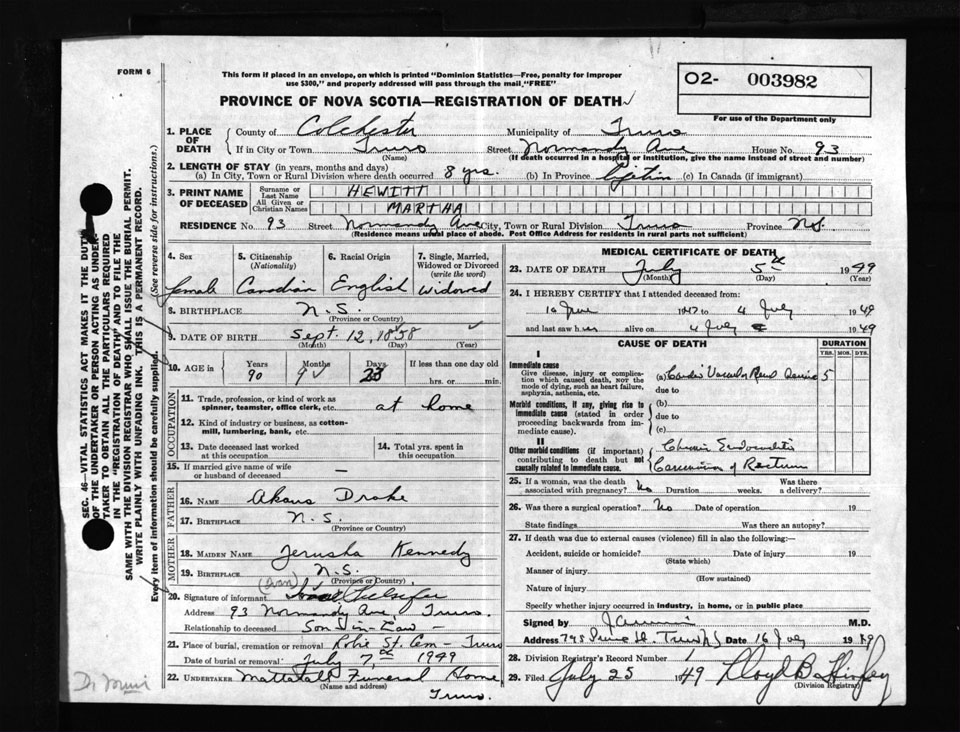 FORM 6
This form if placed in an envelope, on which is printed "Dominion Statistics—Free, penalty for improper
use $300," and properly addressed will pass through the mail "FREE"
PROVINCE OF NOVA SCOTIA—REGISTRATION OF DEATH
O2- 003982
For use of the Department only
1. PLACE OF DEATH
County of Colchester Municipality of Truro
If in City or Town Truro Street Normandy Ave House No. 93
(Name) (If death occurred in a hospital or institution, give the name instead of street and number)
2. LENGTH OF STAY (in years, months and days)
(a) In City, Town or Rural Division where death occurred 8 yrs. (b) In Province (c) In Canada (if immigrant)
3. PRINT NAME OF DECEASED
Surname or Last Name HEWITT
All Given or Christian Names MARTHA
RESIDENCE No. 93 Street Normandy Ave City, Town or Rural Division Truro Province N.S.
(Residence means usual place of abode. Post Office Address for residents in rural parts not sufficient)
4. Sex female
5. Citizenship (Nationality) Canadian
6. Racial Origin English
7. Single, Married, Widowed or Divorced (write the word) widowed
8. BIRTHPLACE N.S.
(Province or Country)
9. DATE OF BIRTH Sept. 12, 1858
(Month) (Day) (Year)
10. AGE in Years 90 Months 9 Days 23 If less than one day old
hrs. or min.
OCCUPATION
11. Trade, profession, or kind of work as
spinner, teamster, office clerk, etc. at home
12. Kind of industry or business, as cotton-
mill, lumbering, bank, etc.
13. Date deceased last worked
at this occupation
14. Total yrs. spent in
this occupation
15. If married give name of wife
or husband of deceased —
FATHER
16. NAME Drake
17. BIRTHPLACE N.S.
(Province or Country)
MOTHER
18. MAIDEN NAME Jerusha Kennedy
19. BIRTHPLACE N.S.
(Province or Country)
20. Signature of informant
Address 93 Normandy Ave Truro.
Relationship to deceased Son-in-Law
21. Place of burial, cremation or removal Robie St. Cem - Truro
Date of burial or removal July 7th 1949
22. UNDERTAKER Mattatall Funeral Home
(Name and address)
Truro.
MEDICAL CERTIFICATE OF DEATH
23. DATE OF DEATH July 5th 1949
(Month) (Day) (Year)
24. I HEREBY CERTIFY that I attended deceased from:
16 June 1947 to 4 July 1949
and last saw her alive on 4 July 1949
CAUSE OF DEATH
DURATION
YRS. MOS. DYS.
I
Immediate cause
Give disease, injury or complica-
tion which caused death, NOT the
mode of dying, such as heart failure,
asphyxia, asthenia, etc.
(a) Cardio Vascular Renal 5
due to
Morbid conditions, if any, giving rise to
immediate cause (stated in order
proceeding backwards from im-
mediate cause).
(b)
due to
(c)
II
Other morbid conditions (if important)
contributing to death but not
causally related to immediate cause.
Chronic Endocarditis
Carcinoma of Rectum
25. If a woman, was the death
associated with pregnancy? No Duration weeks. Was there
a delivery?
26. Was there a surgical operation? No Date of operation 19
State findings Was there an autopsy?
27. If death was due to external causes (violence) fill in also the following:—
Accident, suicide or homicide? Date of injury 19
(State which)
Manner of injury
(How sustained)
Nature of injury
Specify whether injury occurred in industry, in home, or in public place
Signed by M.D.
Address Truro NS Date 16 July 1949
28. Division Registrar's Record Number
29. Filed July 25 1949 Lloyd B.
(Division Registrar)
SEC. 46—VITAL STATISTICS ACT MAKES IT THE DUTY
OF THE UNDERTAKER OR PERSON ACTING AS UNDER-
TAKER TO OBTAIN ALL THE PARTICULARS REQUIRED
IN THE "REGISTRATION OF DEATH" AND TO FILE THE
SAME WITH THE DIVISION REGISTRAR WHO SHALL ISSUE THE BURIAL PERMIT.
WRITE PLAINLY WITH UNFADING INK. THIS IS A PERMANENT RECORD.
Every item of information should be carefully supplied. (See reverse side for instructions.)